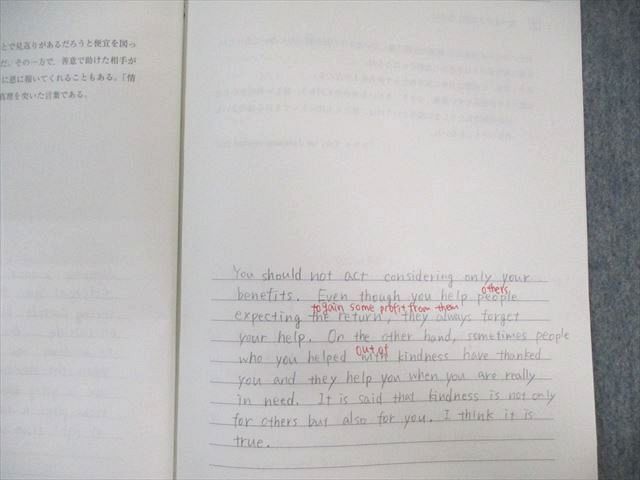 とで見返りがあるだろうと便宜を図っ
だ。その一方で、善意で助けた相手が
に恩に報いてくれることもある。「情
真理を突いた言葉である。
You should not act considering only your
others
benefits. Even though you help people
to gain some profit from them
expecting the return, they always forget
your help. On the other hand, sometimes people
out of
who you helped with kindness have thanked
you and they help you when you are really
in need. It is said that kindness is not only
for others but also for you. I think it is
true.